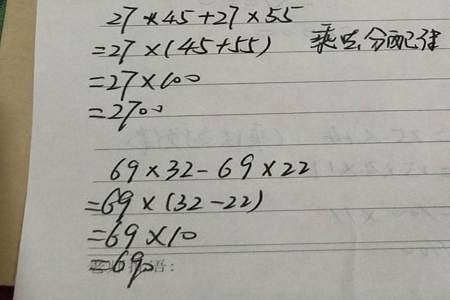 27×45+27×55
=27×(45+55) 乘法分配律
=27×100
=2700
69×32-69×22
=69×(32-22)
=69×10
=690